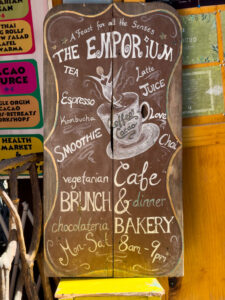 A Feast for all the Senses
THE EMPORIUM
TEA
Latte
JUICE
Espresso
LOVE
Kombucha
Coffee
Cacao
Chai
SMOOTHIE
vegetarian Cafe
BRUNCH & dinner
chocolateria BAKERY
Mon-Sat 8am-9pm
CACAO
HEALTH
MARKET